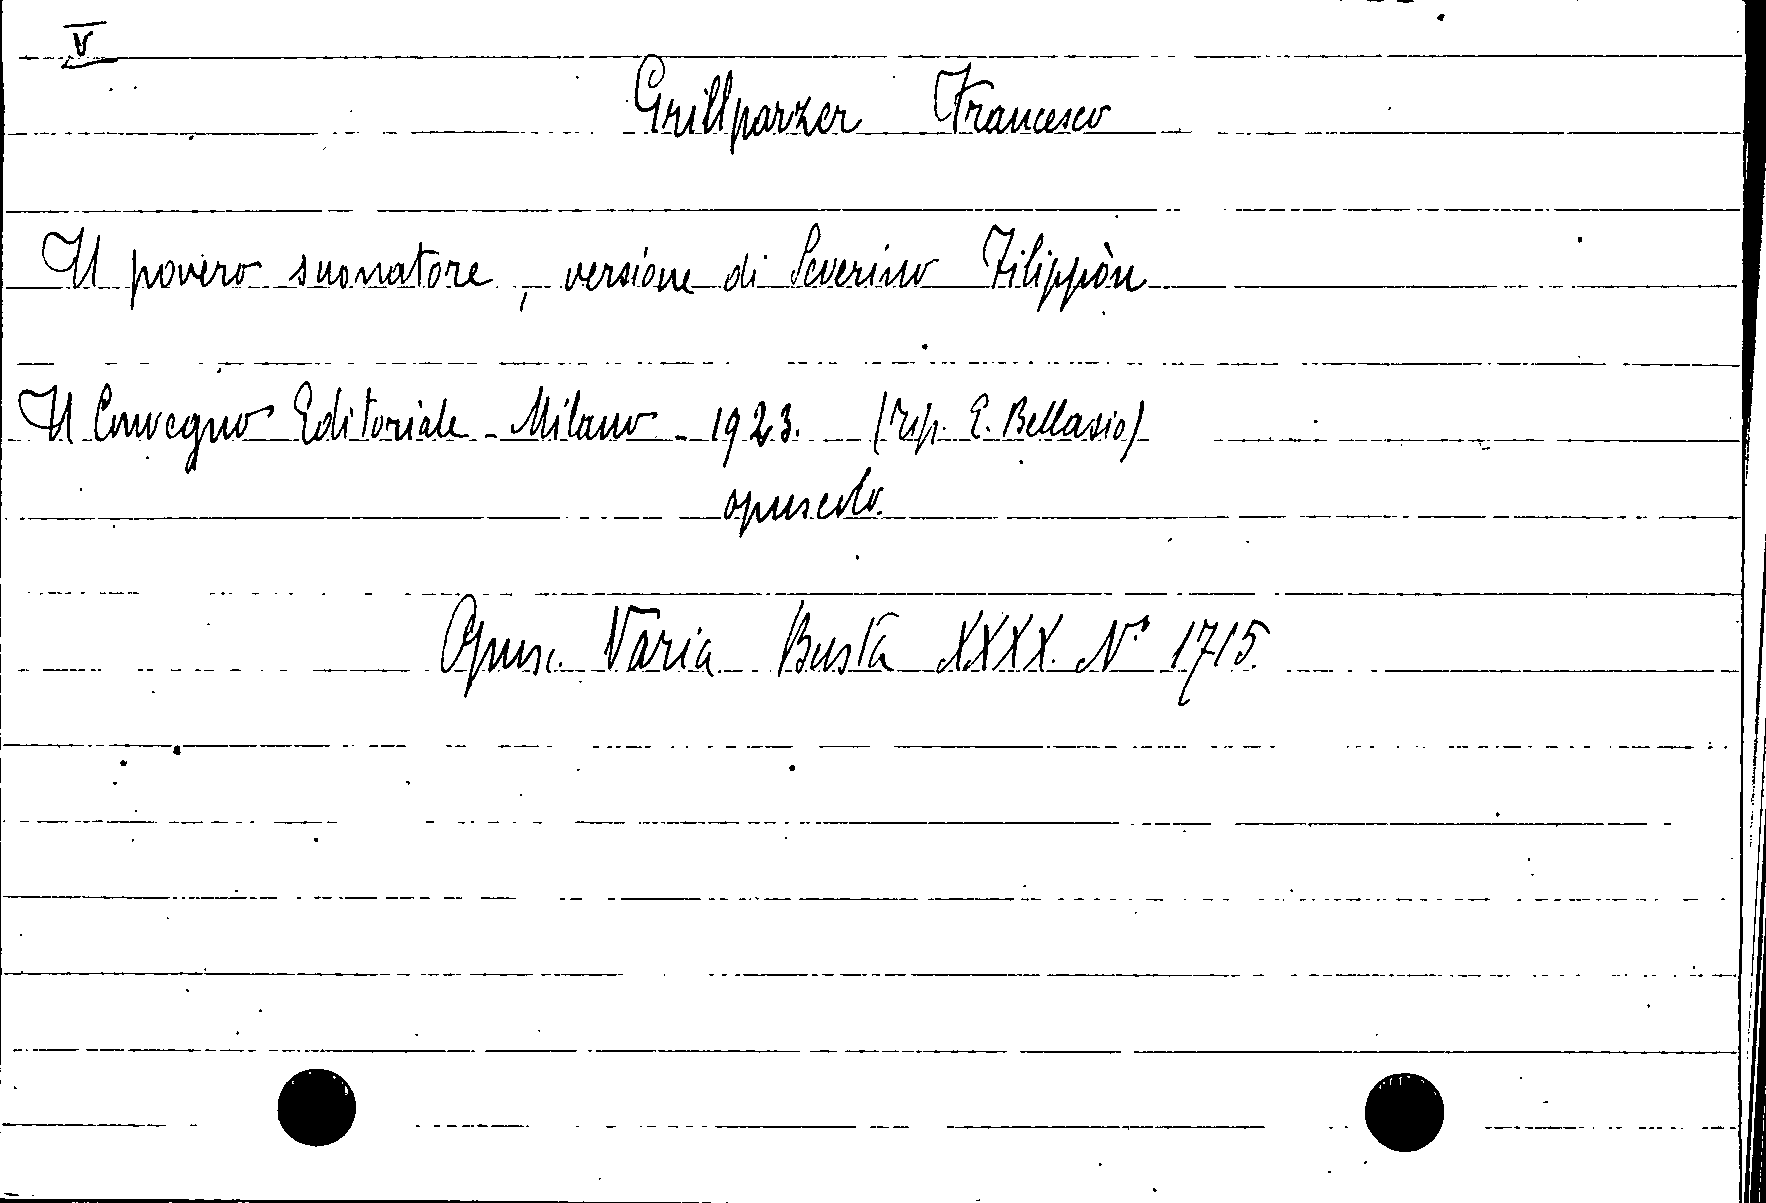 V
Grillparzer Francesco
Il povero suonatore, versione di Severino Filippòn
Il Convegno Editoriale - Milano - 1923. (tip. E. Bellasio)
opuscolo.
Opusc. Varia Busta XXXX. N.º 1715.